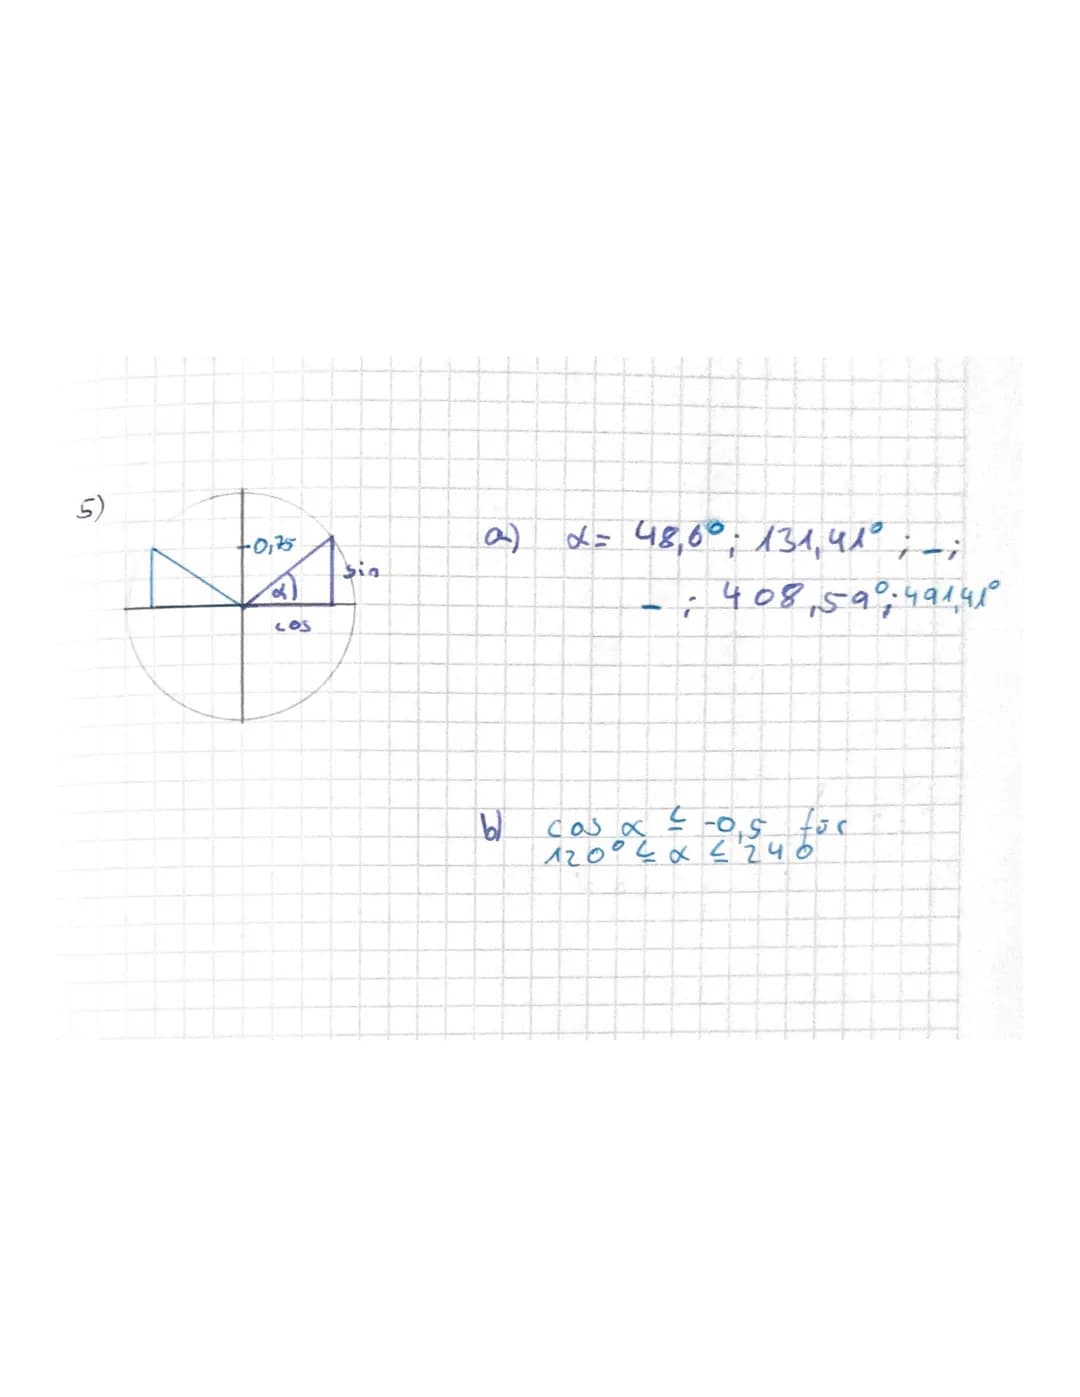 5)
0,75
sin
α
cos
a) α = 48,6°; 131,41°; –;
–; 408,59°; 491,41°
b) cos α ≤ -0,5 für
120° ≤ α ≤ 240